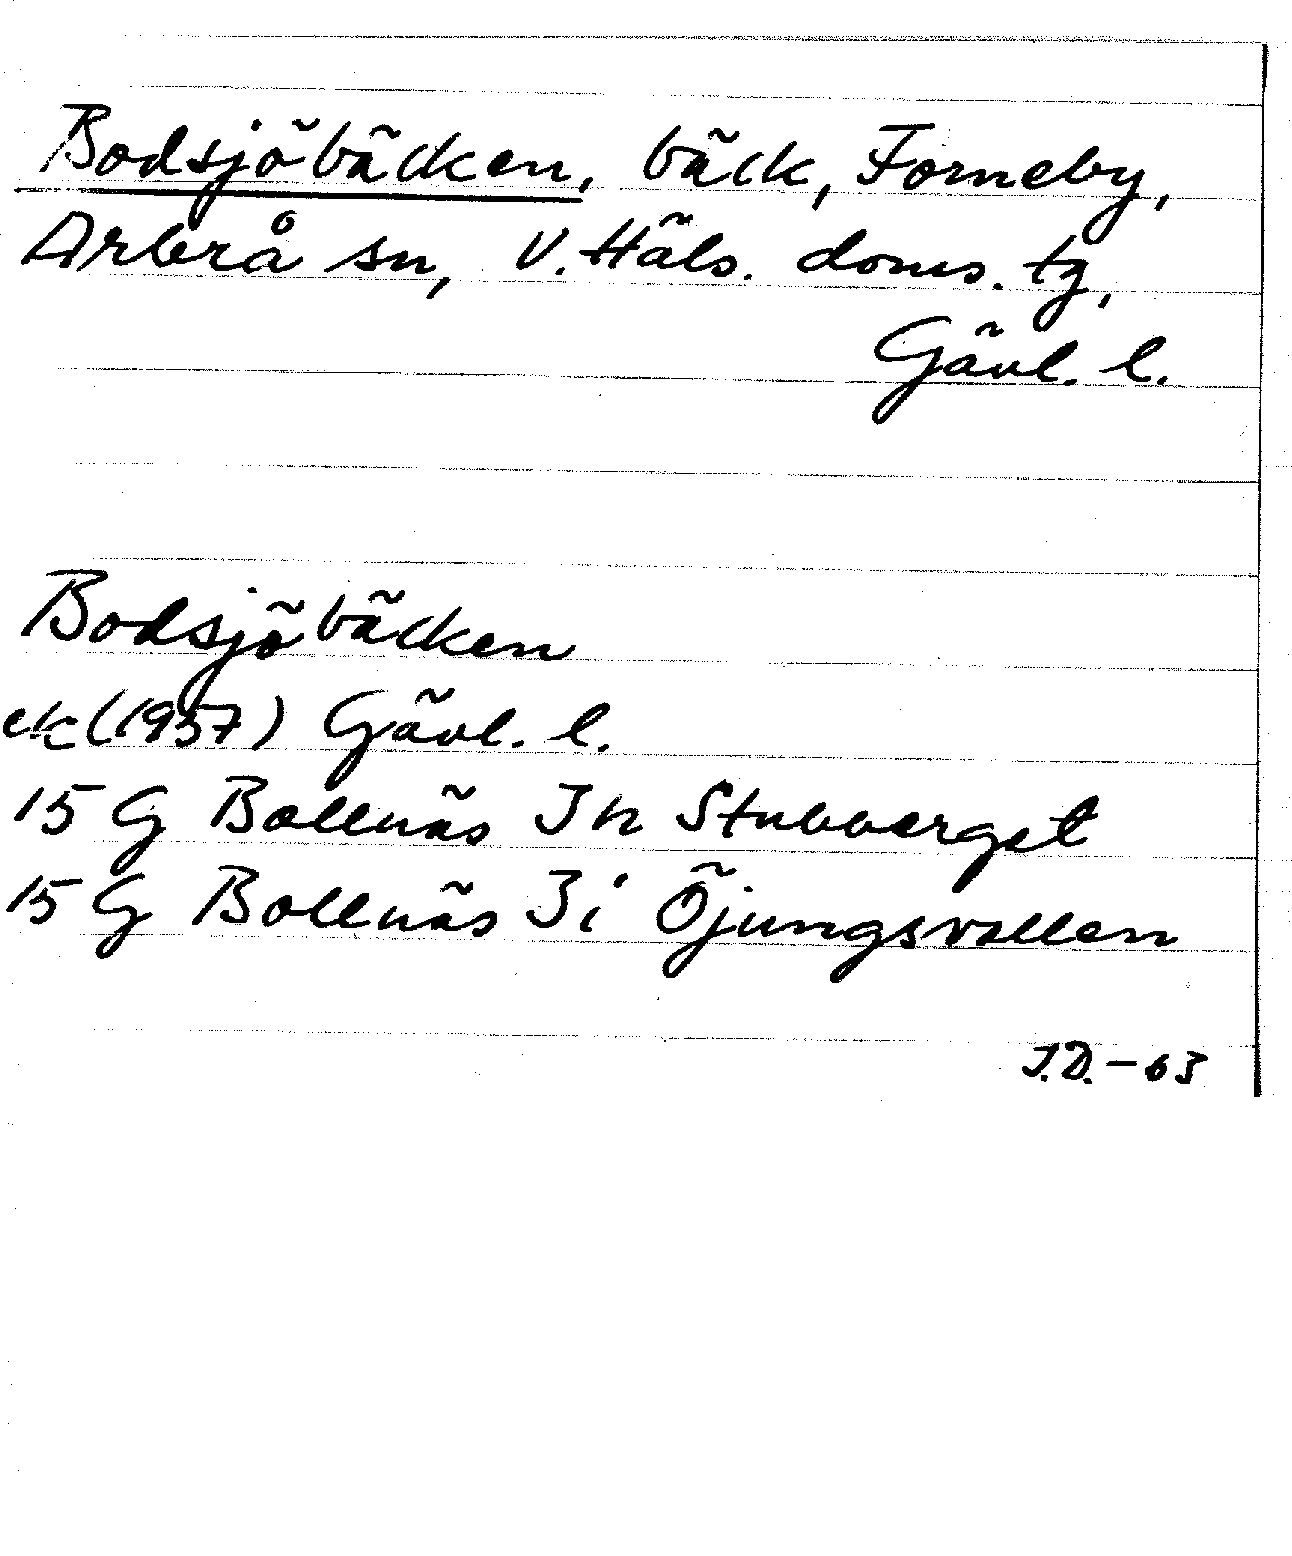 Bodsjöbäcken, bäck, Forneby,
Arbrå sn, V. Häls. doms. tg,
Gävl. l.
Bodsjöbäcken
ek (1957) Gävl. l.
15 G Bollnäs Jh Stubberget
15 G Bollnäs 3i Öjungsvallen
J.D. - 63